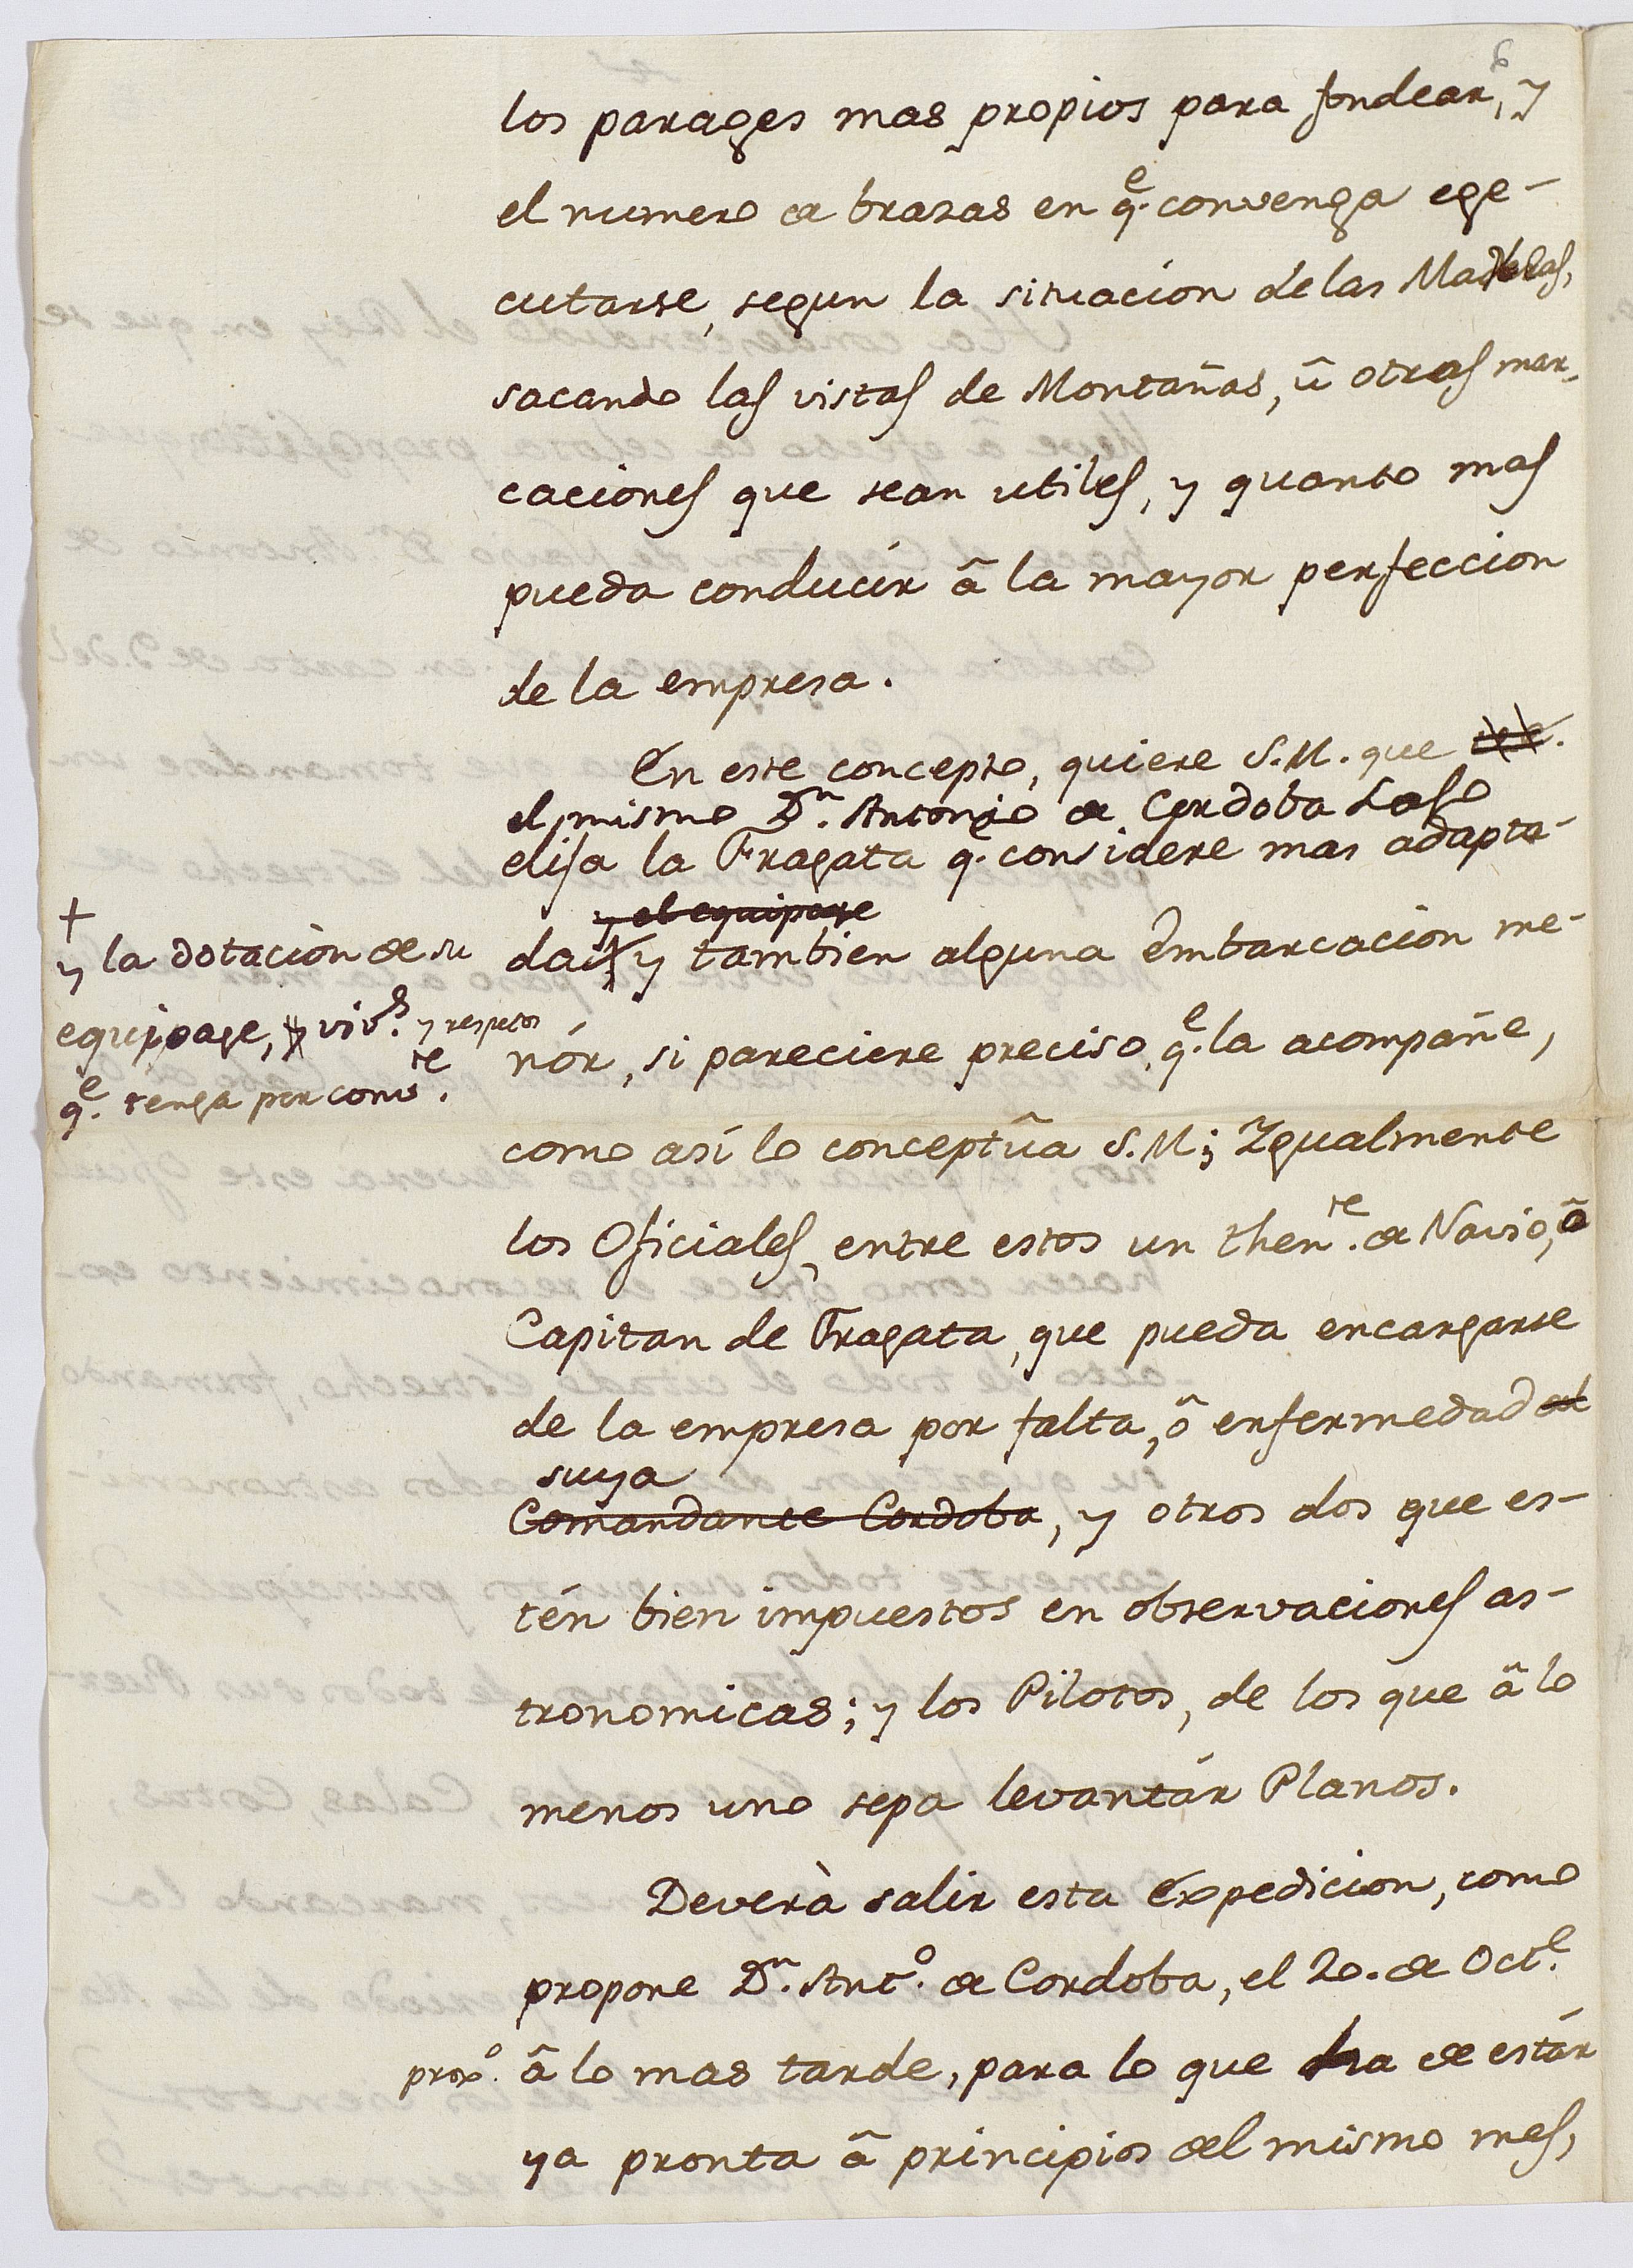 los parages mas propios para fondear, y
el numero de brazas en q.e convenga ege-
cutarse, segun la situacion de las
sacando las vistas de Montañas, û otras mar-
caciones que sean utiles, y quanto mas
pueda conducir â la mayor perfeccion
de la empresa.
En este concepto, quiere S.M. que
el mismo D.n Antonio de Cordoba Laso
elija la Fragata q. considere mas adapta-
y el equipage
da y tambien alguna Embarcacion me-
+
y la dotacion de su
equipage, y viv.s y respetos
q.e tenga por conv.te
nór, si pareciere preciso q.e la acompañe,
como así lo conceptûa S.M.; Igualmente
los Oficiales, entre estos un then.te de Navio, ô
Capitan de Fragata, que pueda encargarse
de la empresa por falta, ô enfermedad del
suya
Comandante Cordoba, y otros dos que es-
tén bien impuestos en observaciones as-
tronomicas; y los Pilotos, de los que â lo
menos uno sepa levantár Planos.
Deverà salir esta Expedicion, como
propone D.n Ant.o de Cordoba, el 20. de Oct.e
prox.o â lo mas tarde, para lo que ha de estár
ya pronta â principios del mismo mes,